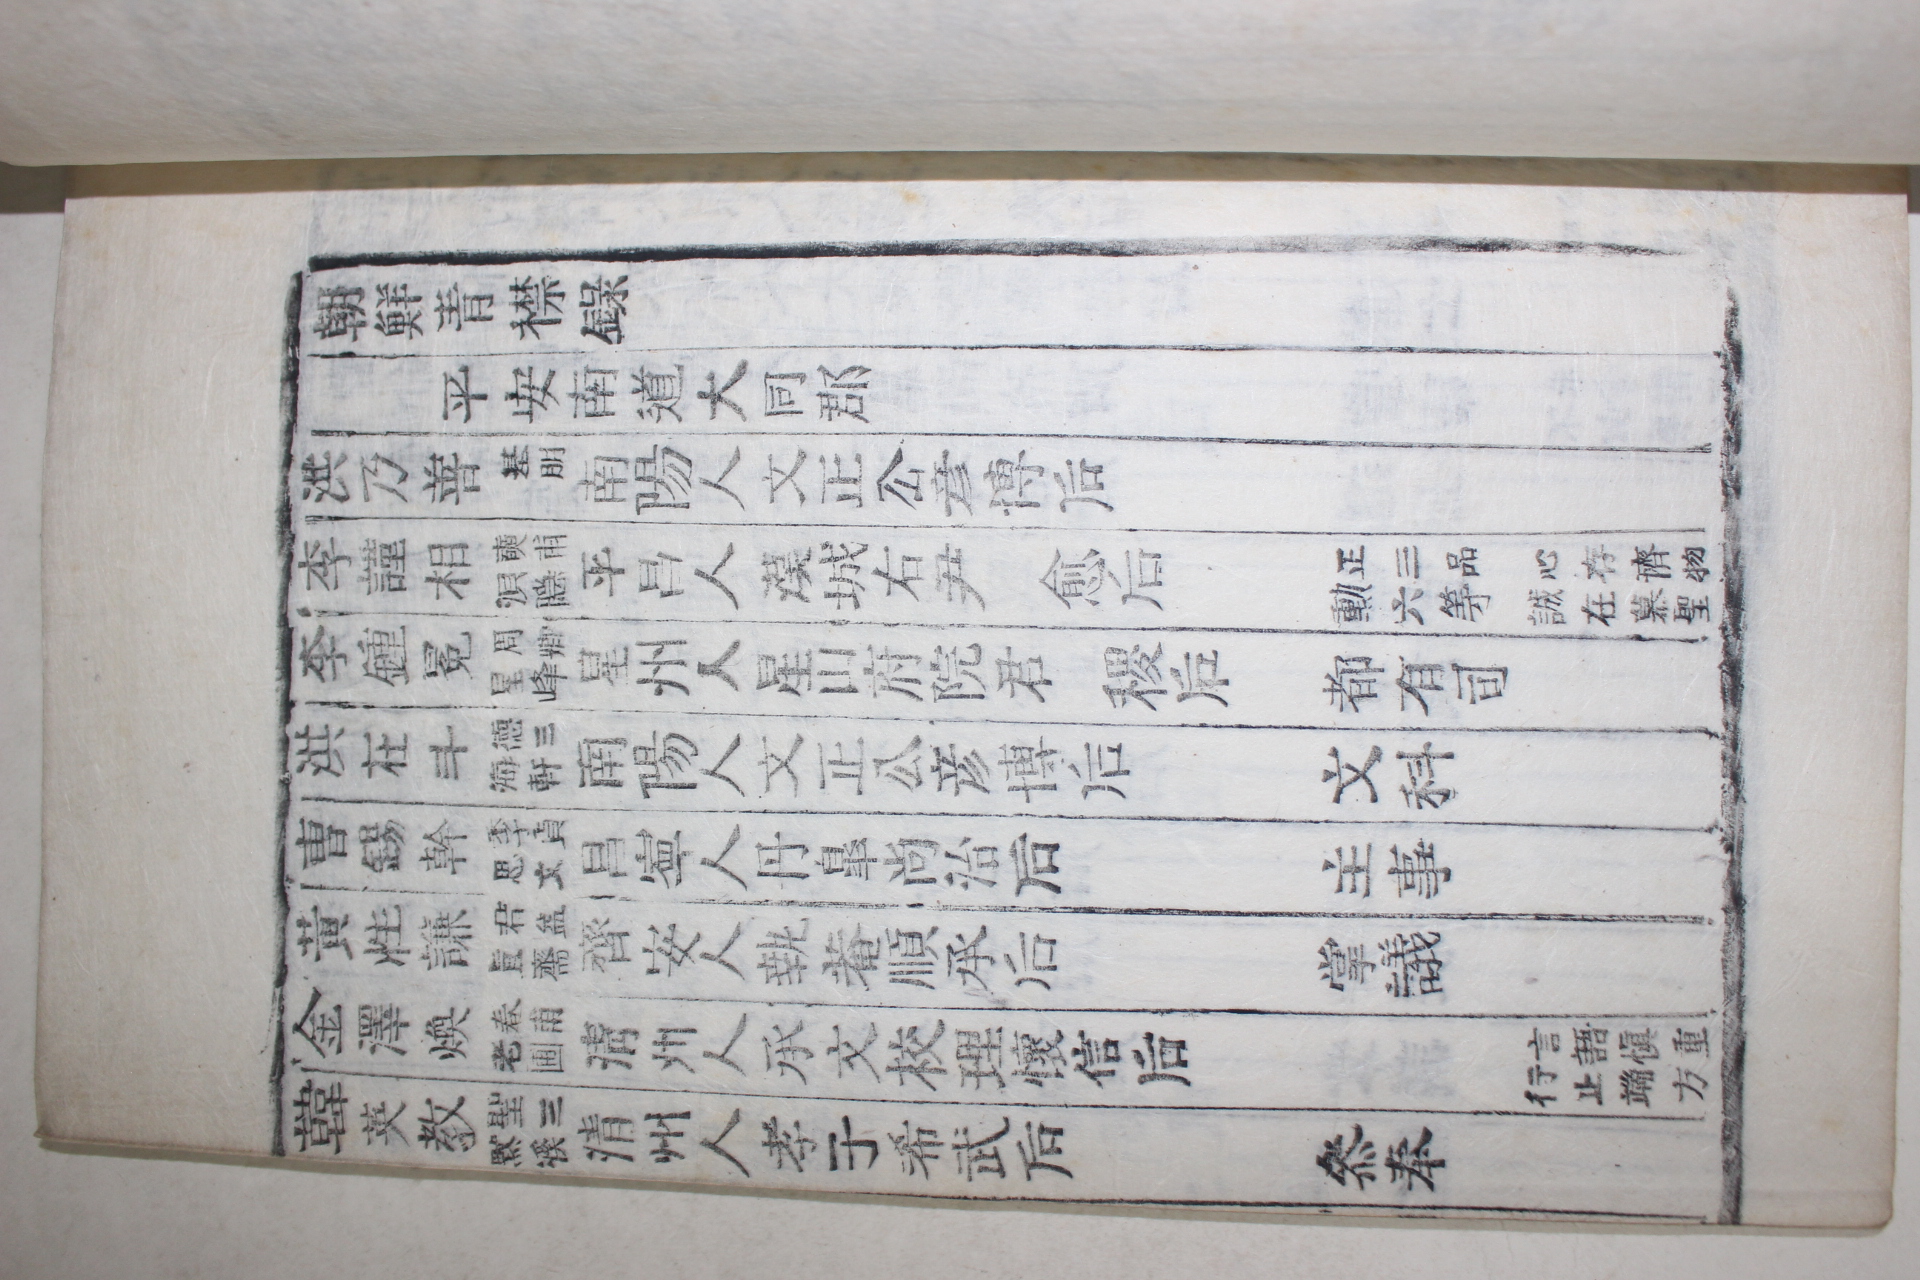 朝鮮青襟錄
平安南道大同郡
洪乃善 基朋 南陽人文正公彦博后
李謹相 奭甫 浿隱 平昌人漢城右尹 愈后 正三品 勳六等 心存濟物 誠在慕聖
李鍾冕 周卿 星峰 星州人星山府院君 稷后 都有司
洪在斗 德三 海軒 南陽人文正公彦博后 文科
曹錫幹 季貞 思文 昌寧人丹皐尚治后 主事
黃性謙 君益 直齋 齊安人執菴順承后 掌議
金澤煥 春甫 老圃 淸州人承文校理懷信后 言語愼重 行止端方
韓英教 聖三 默溪 淸州人孝子希武后 參奉